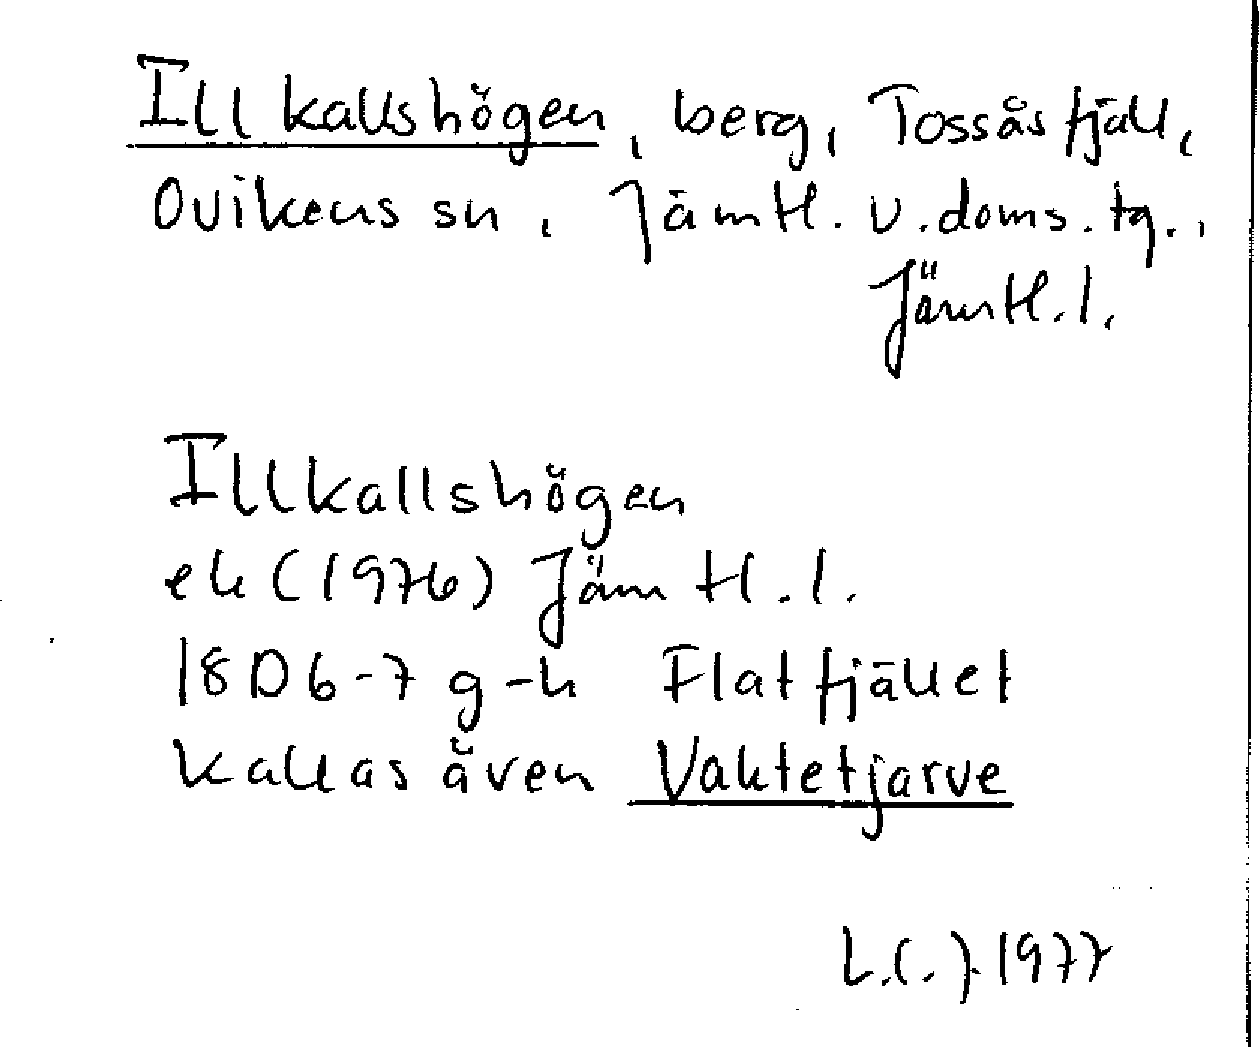 Illkallshögen, berg, Tossåsfjäll,
Ovikens sn, Jämtl. v. doms. tg.,
Jämtl. l.
Illkallshögen
ek (1976) Jämtl. l.
18D 6-7 g-h Flatfjället
Kallas även Vaktetjarve
L.C.J. 1977